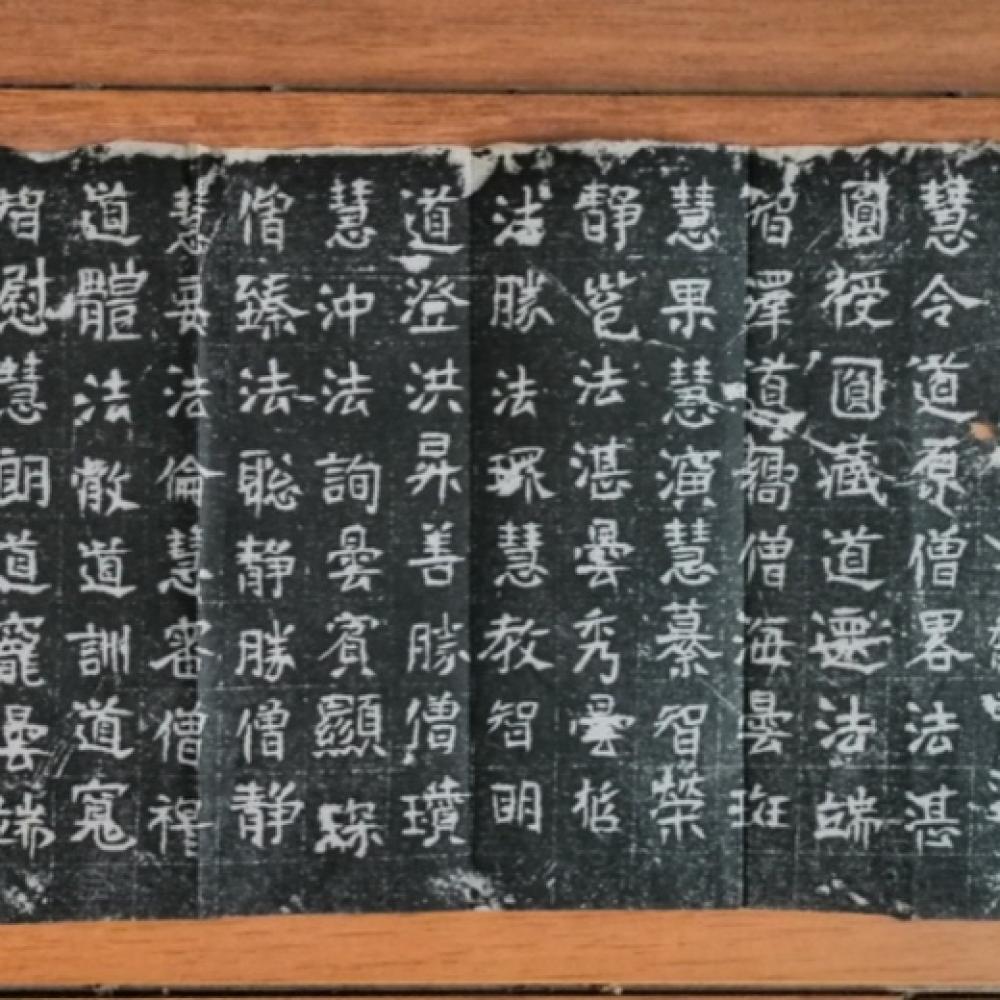 慧令道原僧畧法湛
圓授圓藏道逸法端
智澤道矯僧海曇班
慧果慧演慧纂智榮
靜芭法湛曇秀曇哲
法勝法琛慧教智明
道登洪昇善勝僧瓚
慧沖法詢曇賓顯琛
僧臻法聡靜勝僧靜
慧要法倫慧審僧
道體法敞道訓道寬
智慰慧朗道寵曇端